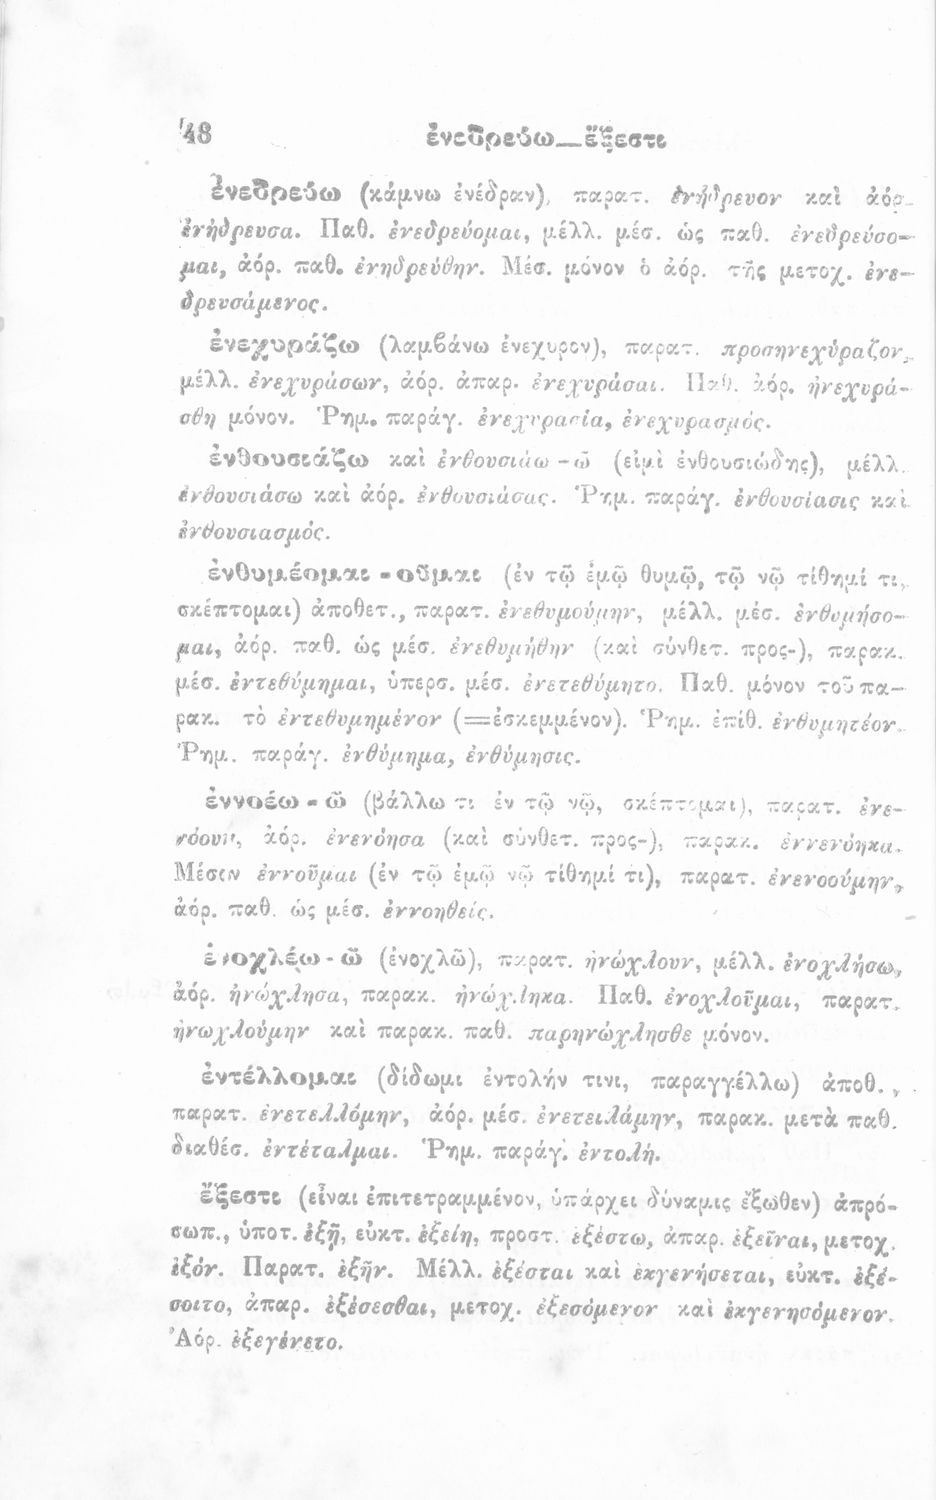 48 ἐνεδρεύω—ἔξεστι
ἐνεδρεύω (κάμνω ἐνέδραν), παρατ. ἐνήδρευον καὶ ἀόρ.
ἐνήδρευσα. Παθ. ἐνεδρεύομαι, μέλλ. μέσ. ὡς παθ. ἐνεδρεύσο-
μαι, ἀόρ. παθ. ἐνηδρεύθην. Μέσ. μόνον ὁ ἀόρ. τῆς μετοχ. ἐνε-
δρευσάμενος.
ἐνεχυράζω (λαμβάνω ἐνέχυρον), παρατ. προσηνεχύραζον,
μέλλ. ἐνεχυράσων, ἀόρ. ἀπαρ. ἐνεχυράσαι. Παθ. ἀόρ. ἠνεχυρά-
σθη μόνον. Ῥημ. παράγ. ἐνεχυρασία, ἐνεχυρασμός.
ἐνθουσιάζω καὶ ἐνθουσιάω -ῶ (εἰμὶ ἐνθουσιώδης), μέλλ.
ἐνθουσιάσω καὶ ἀόρ. ἐνθουσιάσας. Ῥημ. παράγ. ἐνθουσίασις καὶ
ἐνθουσιασμός.
ἐνθυμέομαι - οῦμαι (ἐν τῷ ἐμῷ θυμῷ, τῷ νῷ τίθημί τι,
σκέπτομαι) ἀποθετ., παρατ. ἐνεθυμούμην, μέλλ. μέσ. ἐνθυμήσο-
μαι, ἀόρ. παθ. ὡς μέσ. ἐνεθυμήθην (καὶ σύνθετ. προς-), παρακ.
μέσ. ἐντεθύμημαι, ὑπερσ. μέσ. ἐνετεθύμητο. Παθ. μόνον τοῦ πα-
ρακ. τὸ ἐντεθυμημένον (=ἐσκεμμένον). Ῥημ. ἐπίθ. ἐνθυμητέον.
Ῥημ. παράγ. ἐνθύμημα, ἐνθύμησις.
ἐννοέω - ῶ (βάλλω τι ἐν τῷ νῷ, σκέπτομαι), παρατ. ἐνε-
νόουν, ἀόρ. ἐνενόησα (καὶ σύνθετ. προς-), παρακ. ἐννενόηκα.
Μέσον ἐννοοῦμαι (ἐν τῷ ἐμῷ νῷ τίθημί τι), παρατ. ἐνενοούμην,
ἀόρ. παθ. ὡς μέσ. ἐννοηθείς.
ἐνοχλέω - ῶ (ἐνοχλῶ), παρατ. ἠνώχλουν, μέλλ. ἐνοχλήσω,
ἀόρ. ἠνώχλησα, παρακ. ἠνώχληκα. Παθ. ἐνοχλοῦμαι, παρατ.
ἠνωχλούμην καὶ παρακ. παθ. παρηνώχλησθε μόνον.
ἐντέλλομαι (δίδωμι ἐντολήν τινι, παραγγέλλω) ἀποθ.,
παρατ. ἐνετελλόμην, ἀόρ. μέσ. ἐνετειλάμην, παρακ. μετὰ παθ.
διαθέσ. ἐντέταλμαι. Ῥημ. παράγ. ἐντολή.
ἔξεστι (εἶναι ἐπιτετραμμένον, ὑπάρχει δύναμις ἔξωθεν) ἀπρό-
σωπ., ὑποτ. ἐξῇ, εὐκτ. ἐξείη, προστ. ἐξέστω, ἀπαρ. ἐξεῖναι, μετοχ.
ἐξόν. Παρατ. ἐξῆν. Μέλλ. ἐξέσται καὶ ἐκγενήσεται, εὐκτ. ἐξέ-
σοιτο, ἀπαρ. ἐξέσεσθαι, μετοχ. ἐξεσόμενον καὶ ἐκγενησόμενον.
Ἀόρ. ἐξεγένετο.